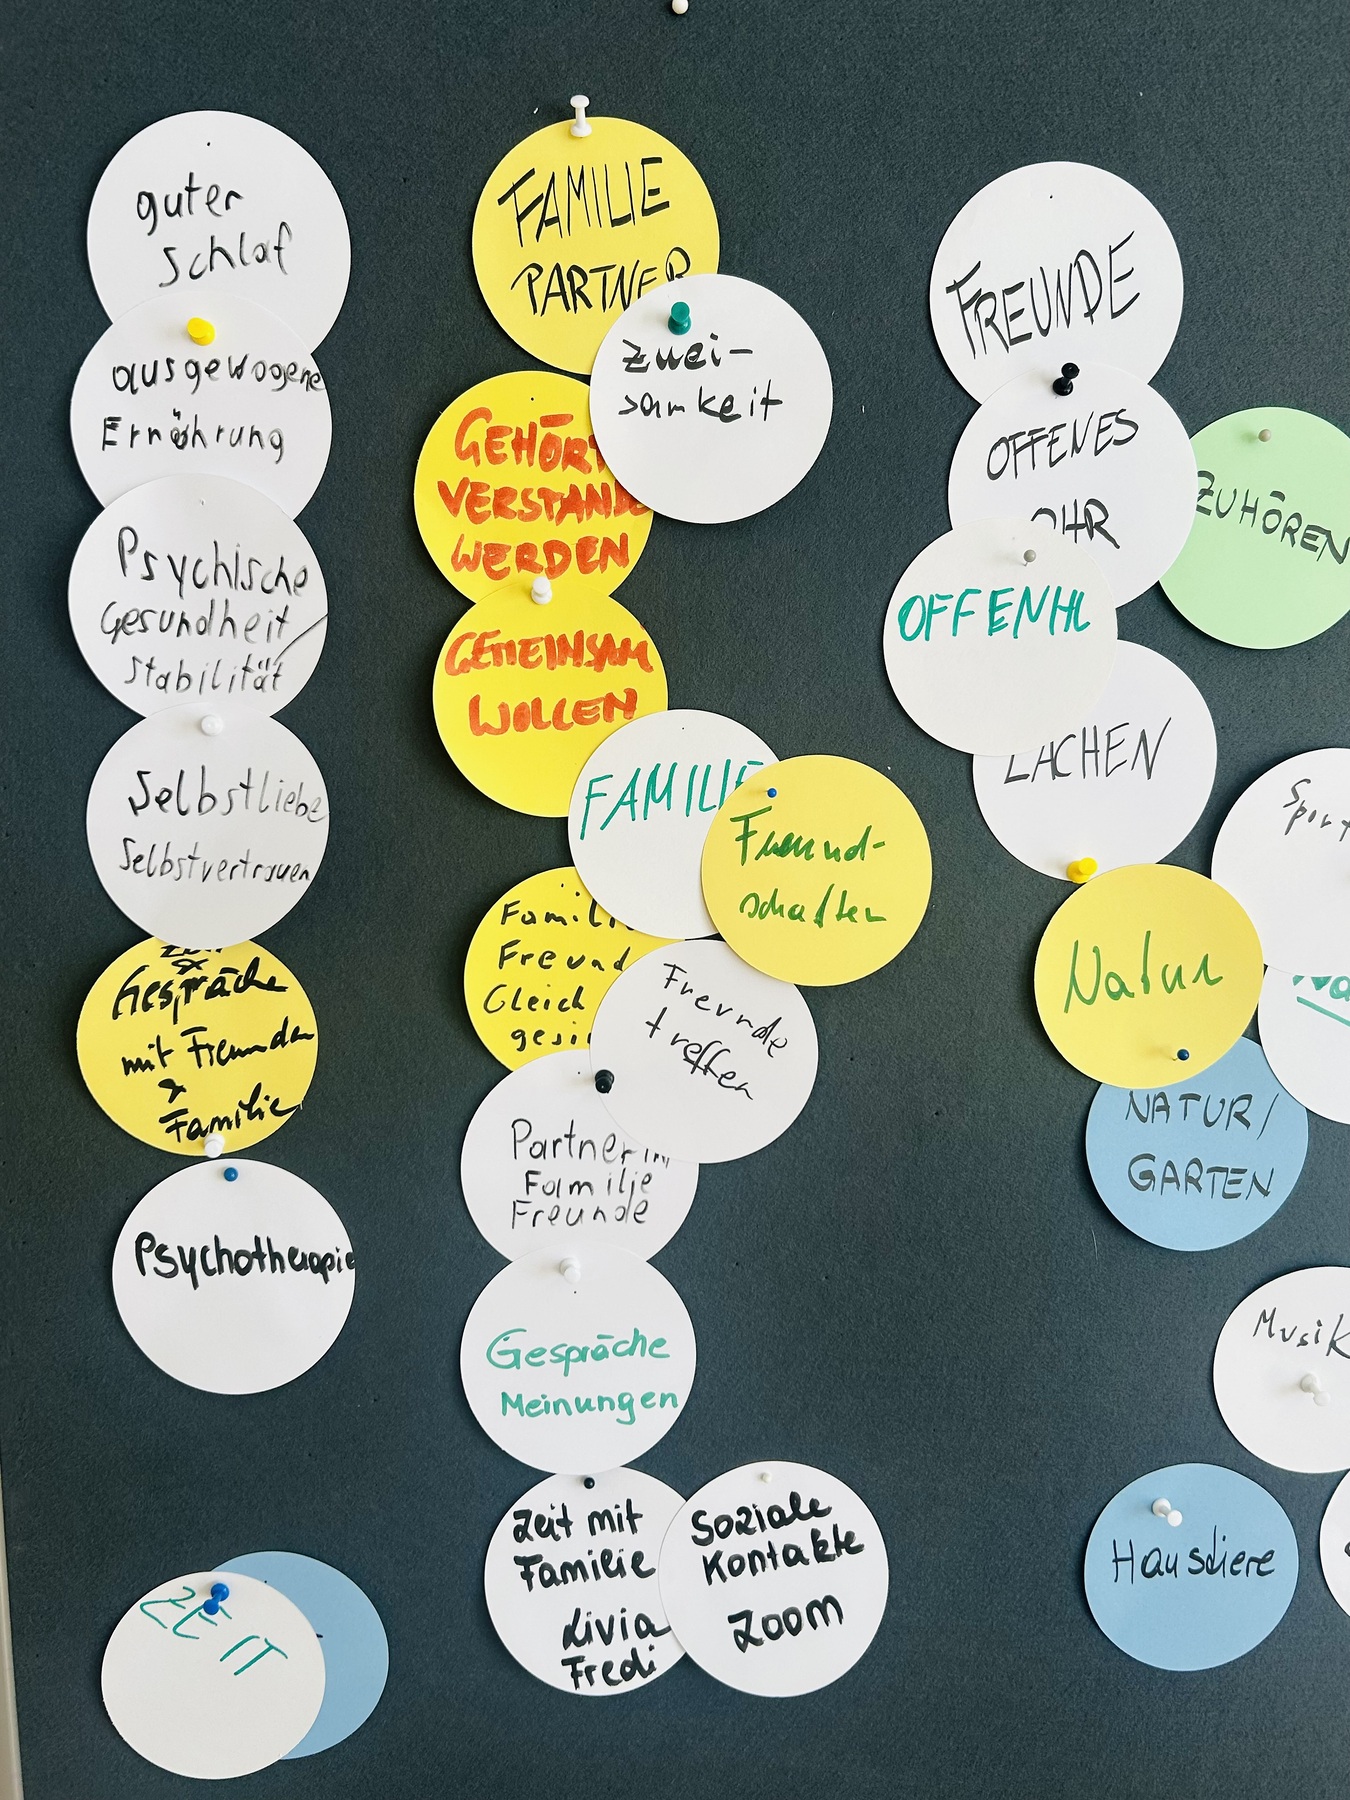 guter
Schlaf
ausgewogene
Ernährung
Psychische
Gesundheit
Stabilität
Selbstliebe
Selbstvertrauen
&
Gespräche
mit Freunden
&
Familie
Psychotherapie
ZEIT
FAMILIE
PARTNER
Zwei-
samkeit
GEHÖRT
VERSTAND
WERDEN
GEMEINSAM
WOLLEN
FAMILIE
Freund-
schaften
Famili
Freund
Gleich
gesi
Freunde
treffen
Partnerin
Familie
Freunde
Gespräche
Meinungen
Zeit mit
Familie
Livia
Fredi
Soziale
Kontakte
ZOOM
FREUNDE
OFFENES
OHR
ZUHÖREN
OFFENH
LACHEN
Sport
Natur
Na
NATUR/
GARTEN
Musik
Haustiere